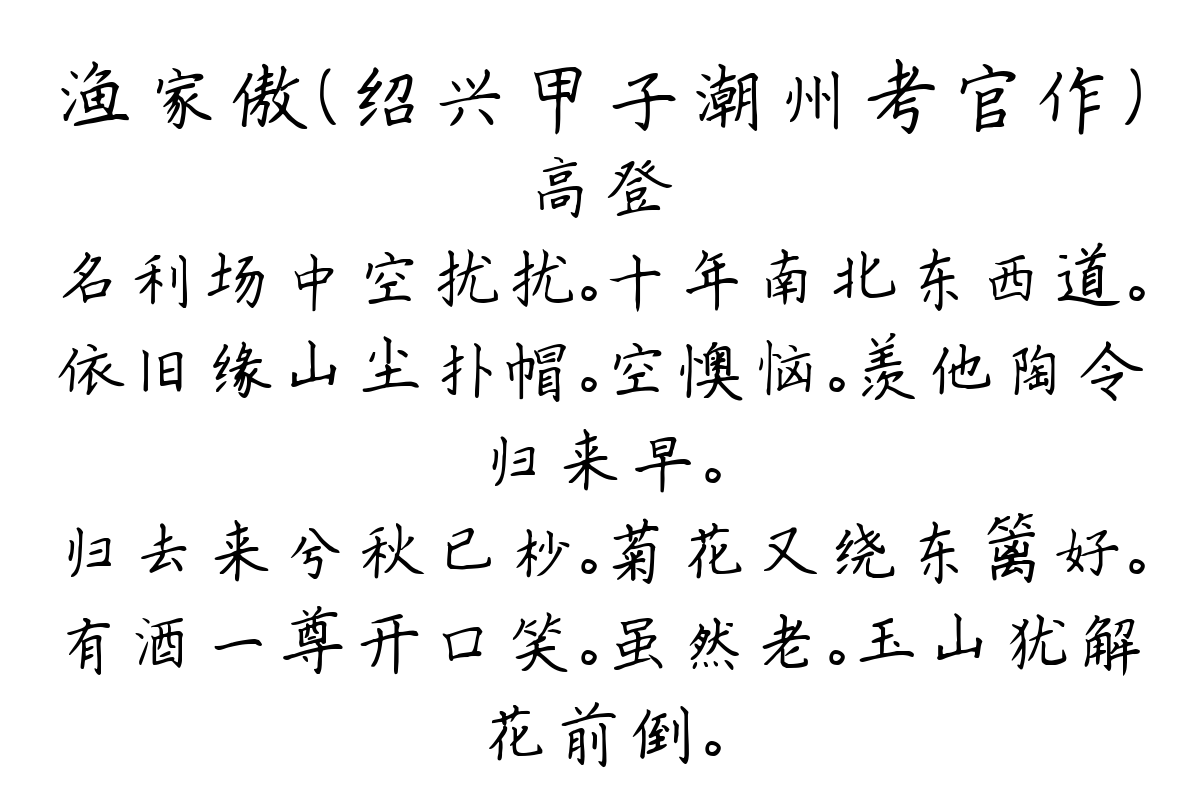 渔家傲(绍兴甲子潮州考官作)
高登
名利场中空扰扰。十年南北东西道。
依旧缘山尘扑帽。空懊恼。羡他陶令
归来早。
归去来兮秋已杪。菊花又绕东篱好。
有酒一尊开口笑。虽然老。玉山犹解
花前倒。